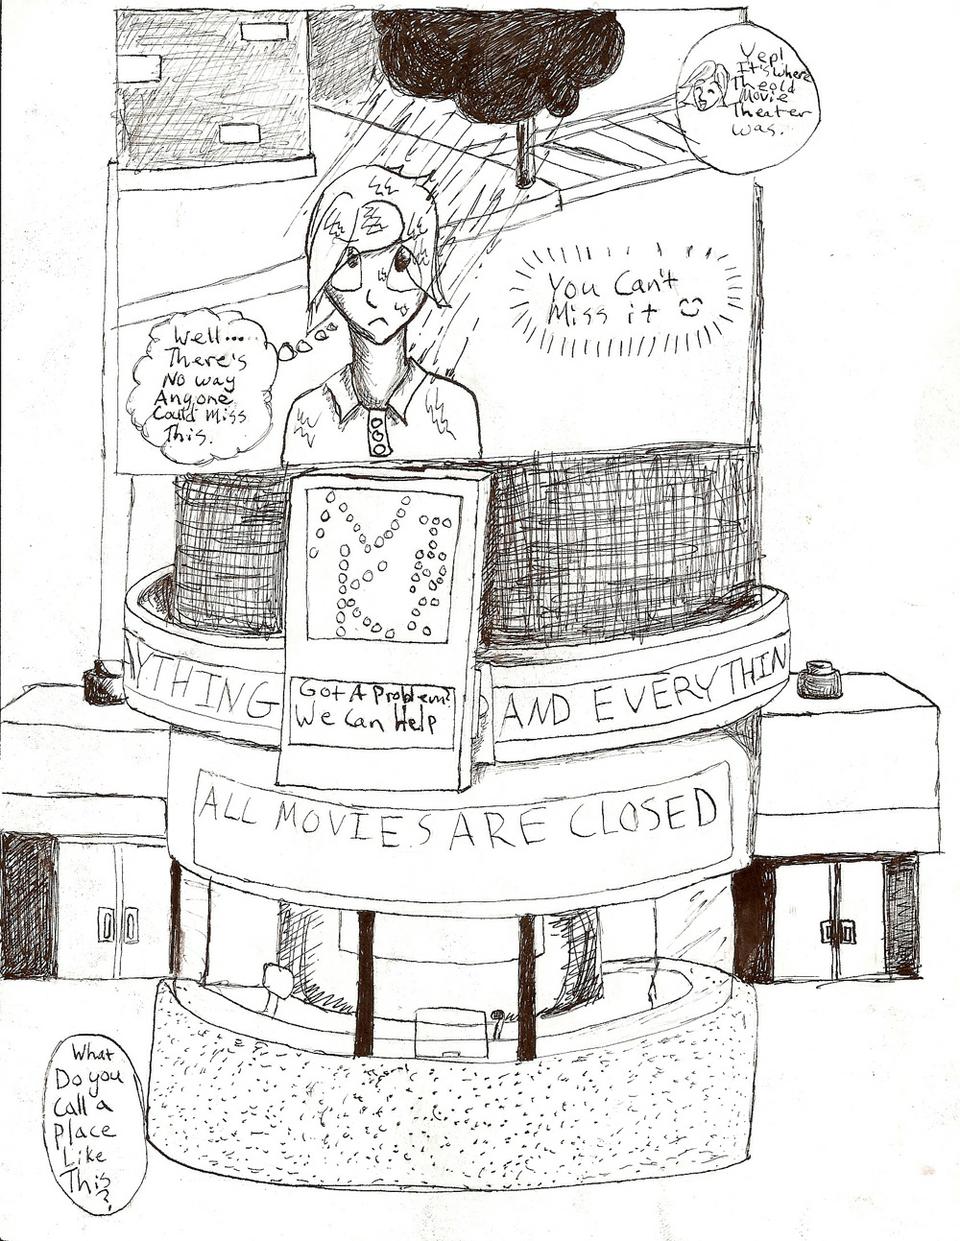 Yep!
It's where
The old
Movie
Theater
was.
You Can't
Miss it
Well....
There's
No way
Anyone
Could Miss
This.
Got A Problem?
We Can Help
NYTHING
AND EVERYTHIN
ALL MOVIES ARE CLOSED
What
Do you
Call a
Place
Like
This
?